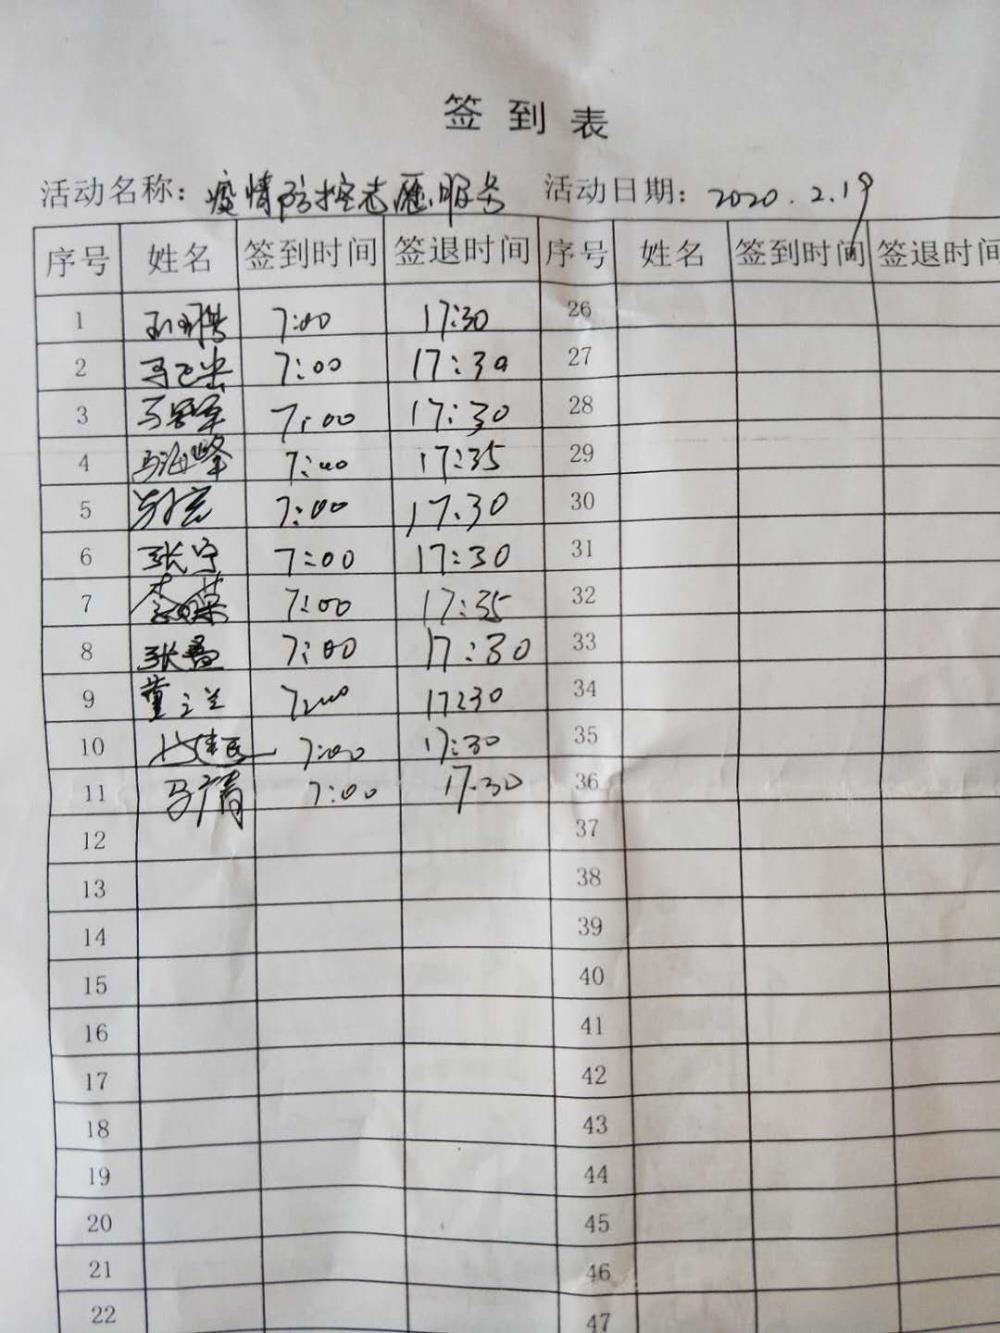 签到表
活动名称：疫情防控志愿服务 活动日期：2020.2.19
序号 姓名 签到时间 签退时间 序号 姓名 签到时间 签退时间
1 7:00 17:30 26
2 7:00 17:30 27
3 7:00 17:30 28
4 马海峰 7:00 17:35 29
5 7:00 17:30 30
6 张宁 7:00 17:30 31
7 7:00 17:35 32
8 7:00 17:30 33
9 董之兰 7:00 17:30 34
10 7:00 17:30 35
11 马广青 7:00 17:30 36
12 37
13 38
14 39
15 40
16 41
17 42
18 43
19 44
20 45
21 46
22 47